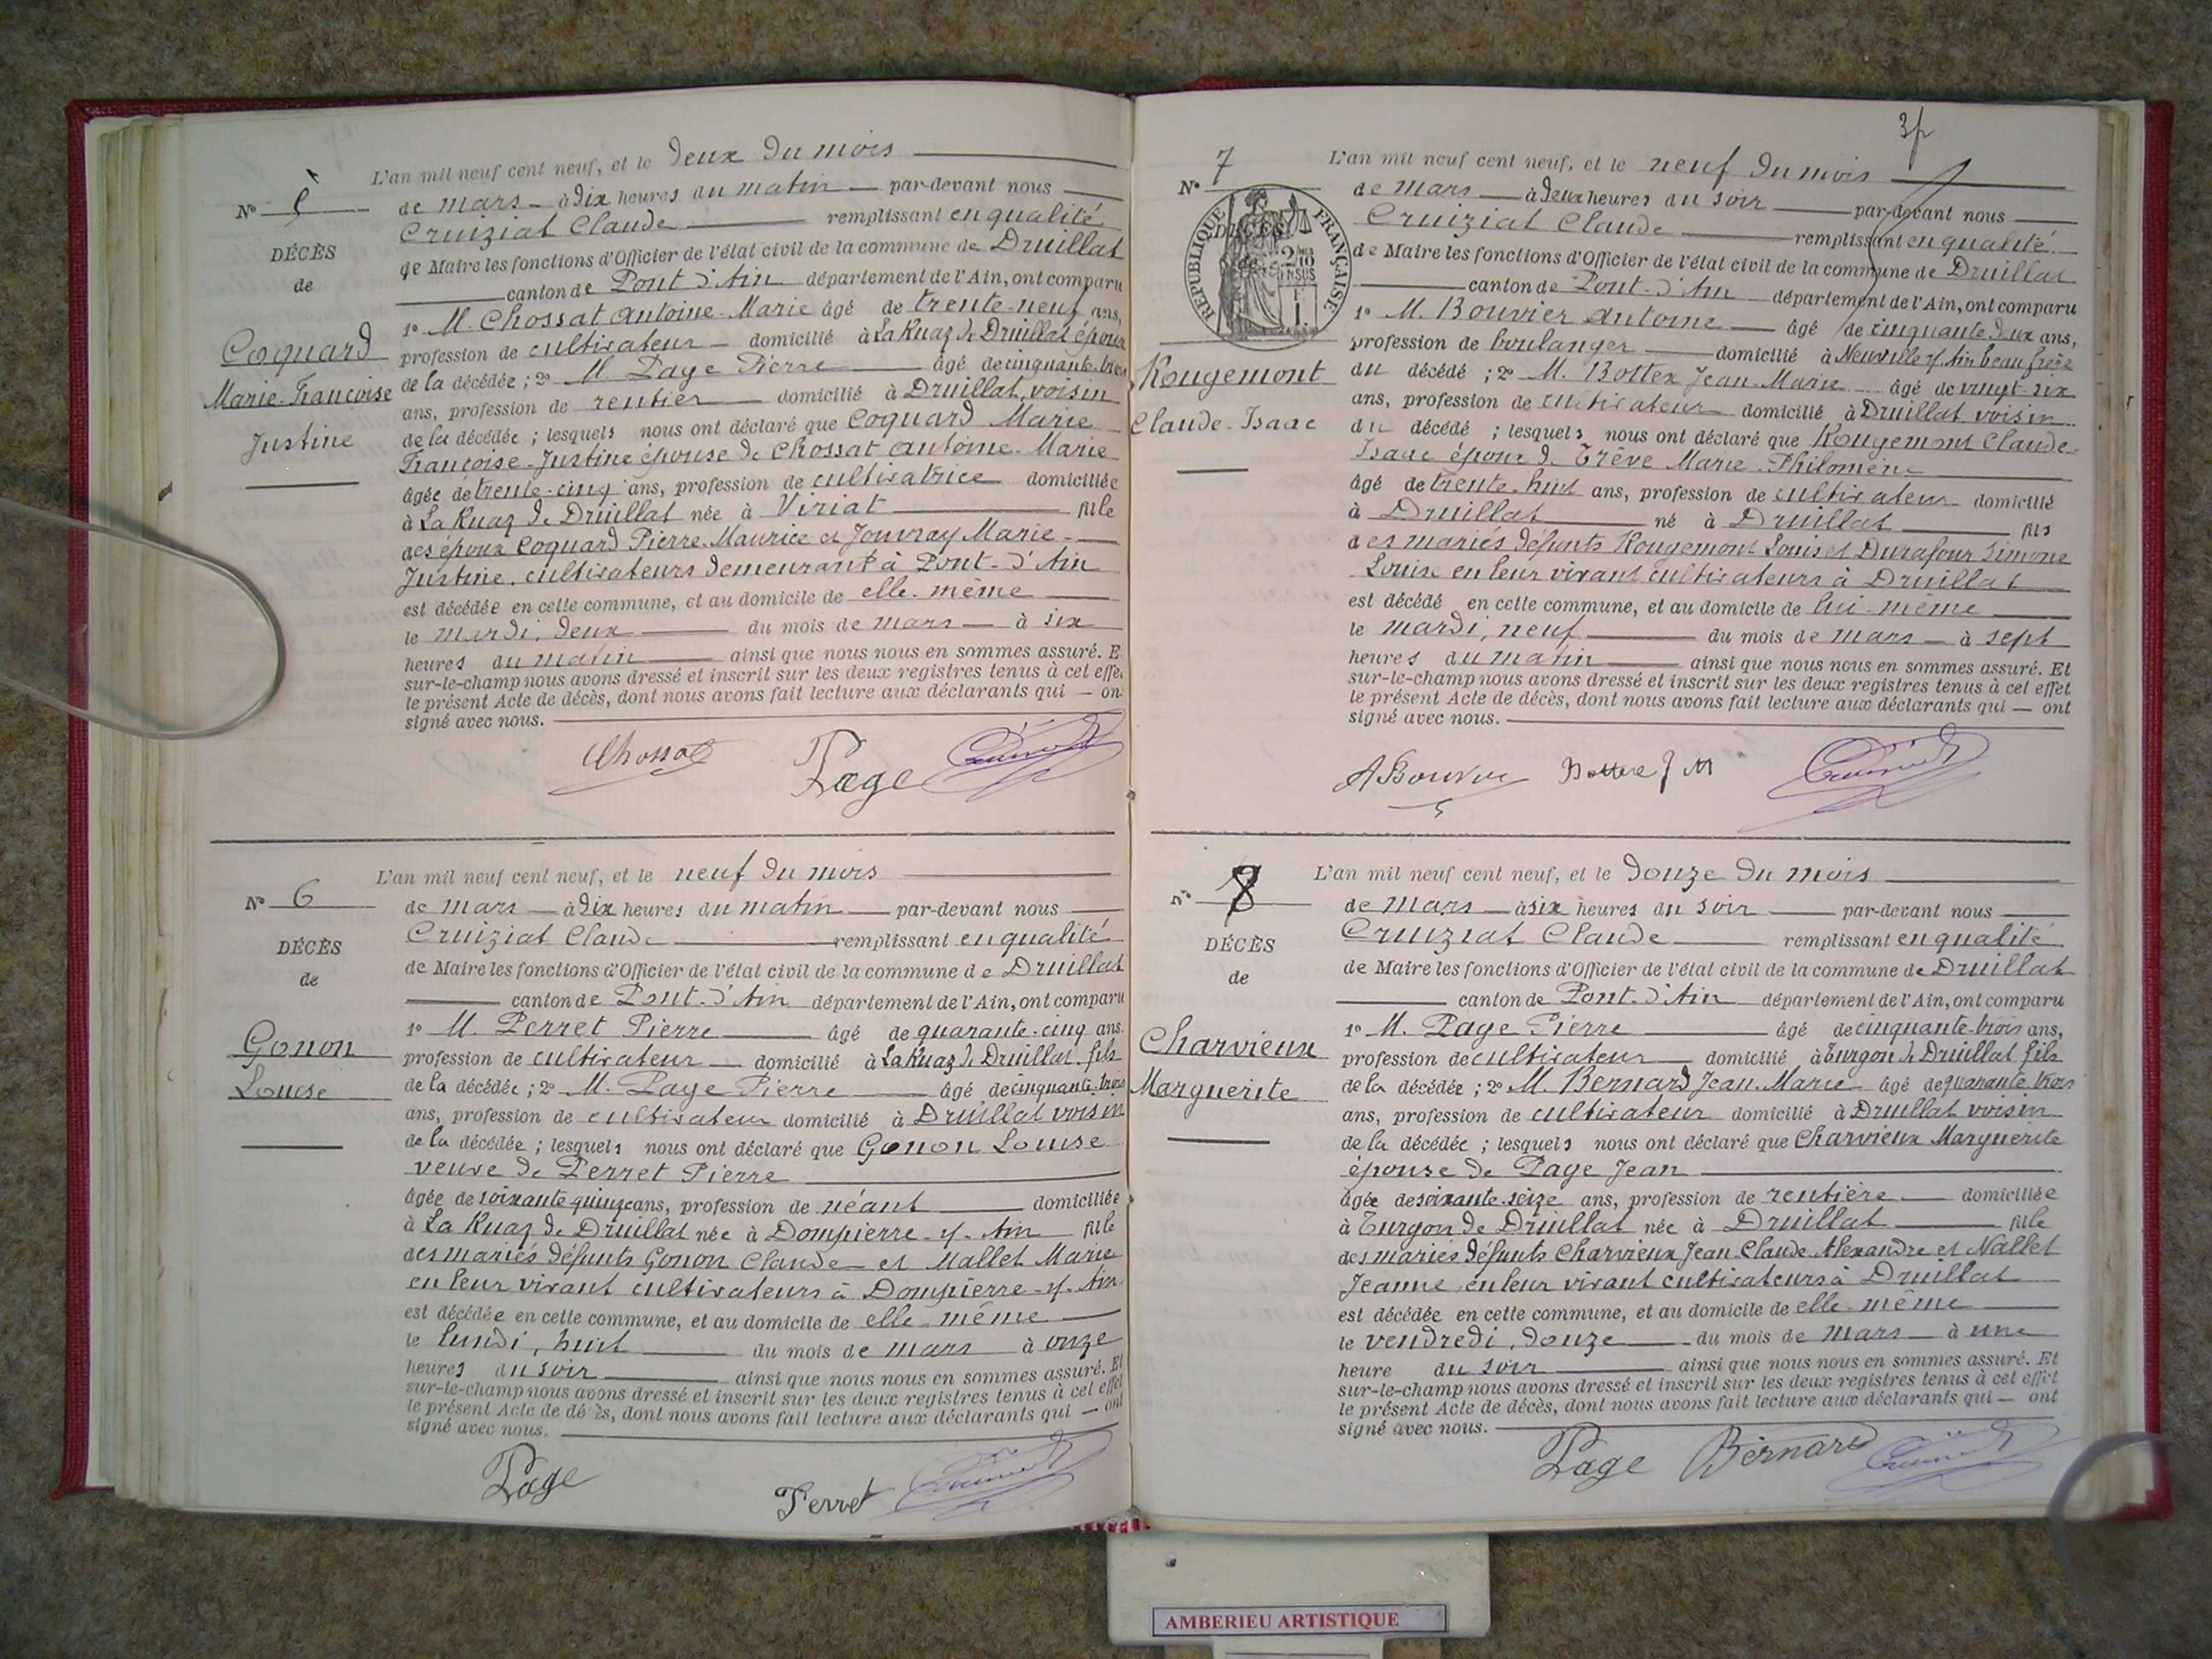 L'an mil neuf cent neuf, et le deux du mois
N° 5
de mars à dix heures du matin par-devant nous
Cruiziat Claude remplissant en qualité
DÉCÈS
de Maire les fonctions d'Officier de l'état civil de la commune de Druillat
de
canton de Pont d'Ain département de l'Ain, ont comparu
1° M. Chossat Antoine-Marie âgé de trente-neuf ans,
Coquard
profession de cultivateur domicilié à La Ruaz de Druillat époux
Marie-Françoise
de la décédée ; 2° M. Page Pierre âgé de cinquante-trois
ans, profession de rentier domicilié à Druillat, voisin
Justine
de la décédée ; lesquels nous ont déclaré que Coquard Marie
Françoise-Justine épouse de Chossat Antoine-Marie
âgée de trente-cinq ans, profession de cultivatrice domiciliée
à La Ruaz de Druillat née à Viriat fille
des époux Coquard Pierre-Maurice et Jouvray Marie-
Justine, cultivateurs demeurant à Pont-d'Ain
est décédée en cette commune, et au domicile de elle-même
le mardi, deux du mois de mars à six
heures du matin ainsi que nous nous en sommes assuré. E
sur-le-champ nous avons dressé et inscrit sur les deux registres tenus à cet effe
le présent Acte de décès, dont nous avons fait lecture aux déclarants qui — on
signé avec nous.
Chossat Page
L'an mil neuf cent neuf, et le neuf du mois
N° 6
de mars à dix heures du matin par-devant nous
Cruiziat Claude remplissant en qualité
DÉCÈS
de Maire les fonctions d'Officier de l'état civil de la commune de Druillat
de
canton de Pont-d'Ain département de l'Ain, ont comparu
1° M. Perret Pierre âgé de quarante-cinq ans.
Gonon
profession de cultivateur domicilié à La Ruaz de Druillat fils
Louise
de la décédée ; 2° M. Page Pierre âgé de cinquante-trois
ans, profession de cultivateur domicilié à Druillat voisin
de la décédée ; lesquels nous ont déclaré que Gonon Louise
veuve de Perret Pierre
âgée de soixante quinze ans, profession de néant domiciliée
à La Ruaz de Druillat née à Dompierre-s/-Ain fille
des mariés défunts Gonon Claude et Mallet Marie
en leur vivant cultivateurs à Dompierre-s/-Ain
est décédée en cette commune, et au domicile de elle-même
le lundi, huit du mois de mars à onze
heures du soir ainsi que nous nous en sommes assuré. Et
sur-le-champ nous avons dressé et inscrit sur les deux registres tenus à cet effet
le présent Acte de décès, dont nous avons fait lecture aux déclarants qui — ont
signé avec nous.
Page Perret
L'an mil neuf cent neuf, et le neuf du mois
N° 7
de mars à deux heures du soir par-devant nous
Cruiziat Claude remplissant en qualité
RÉPUBLIQUE FRANÇAISE
DÉCÈS
2/10 EN SUS
1 F.
de Maire les fonctions d'Officier de l'état civil de la commune de Druillat
canton de Pont-d'Ain département de l'Ain, ont comparu
1° M. Bouvier Antoine âgé de cinquante deux ans,
profession de boulanger domicilié à Neuville s/ Ain beau frère
Rougemont
du décédé ; 2° M. Bottex Jean-Marie âgé de vingt-six
ans, profession de cultivateur domicilié à Druillat voisin
Claude-Isaac
du décédé ; lesquels nous ont déclaré que Rougemont Claude-
Isaac époux de Trève Marie-Philomène
âgé de trente-huit ans, profession de cultivateur domicilié
à Druillat né à Druillat fils
des mariés défunts Rougemont Louis et Durafour Simone
Louise en leur vivant cultivateurs à Druillat
est décédé en cette commune, et au domicile de lui-même
le mardi, neuf du mois de mars à sept
heures du matin ainsi que nous nous en sommes assuré. Et
sur-le-champ nous avons dressé et inscrit sur les deux registres tenus à cet effet
le présent Acte de décès, dont nous avons fait lecture aux déclarants qui — ont
signé avec nous.
A Bouvier Bottex J M
L'an mil neuf cent neuf, et le douze du mois
N° 8
de mars à six heures du soir par-devant nous
Cruiziat Claude remplissant en qualité
DÉCÈS
de Maire les fonctions d'Officier de l'état civil de la commune de Druillat
de
canton de Pont-d'Ain département de l'Ain, ont comparu
1° M. Page Pierre âgé de cinquante-trois ans,
Charvieux
profession de cultivateur domicilié à Turgon de Druillat fils
Marguerite
de la décédée ; 2° M. Bernard Jean-Marie âgé de quarante trois
ans, profession de cultivateur domicilié à Druillat voisin
de la décédée ; lesquels nous ont déclaré que Charvieux Marguerite
épouse de Page Jean
âgée de soixante-seize ans, profession de rentière domiciliée
à Turgon de Druillat née à Druillat fille
des mariés défunts Charvieux Jean-Claude-Alexandre et Nallet
Jeanne en leur vivant cultivateurs à Druillat
est décédée en cette commune, et au domicile de elle-même
le vendredi, douze du mois de mars à une
heure du soir ainsi que nous nous en sommes assuré. Et
sur-le-champ nous avons dressé et inscrit sur les deux registres tenus à cet effet
le présent Acte de décès, dont nous avons fait lecture aux déclarants qui — ont
signé avec nous.
Page Bernard
AMBERIEU ARTISTIQUE